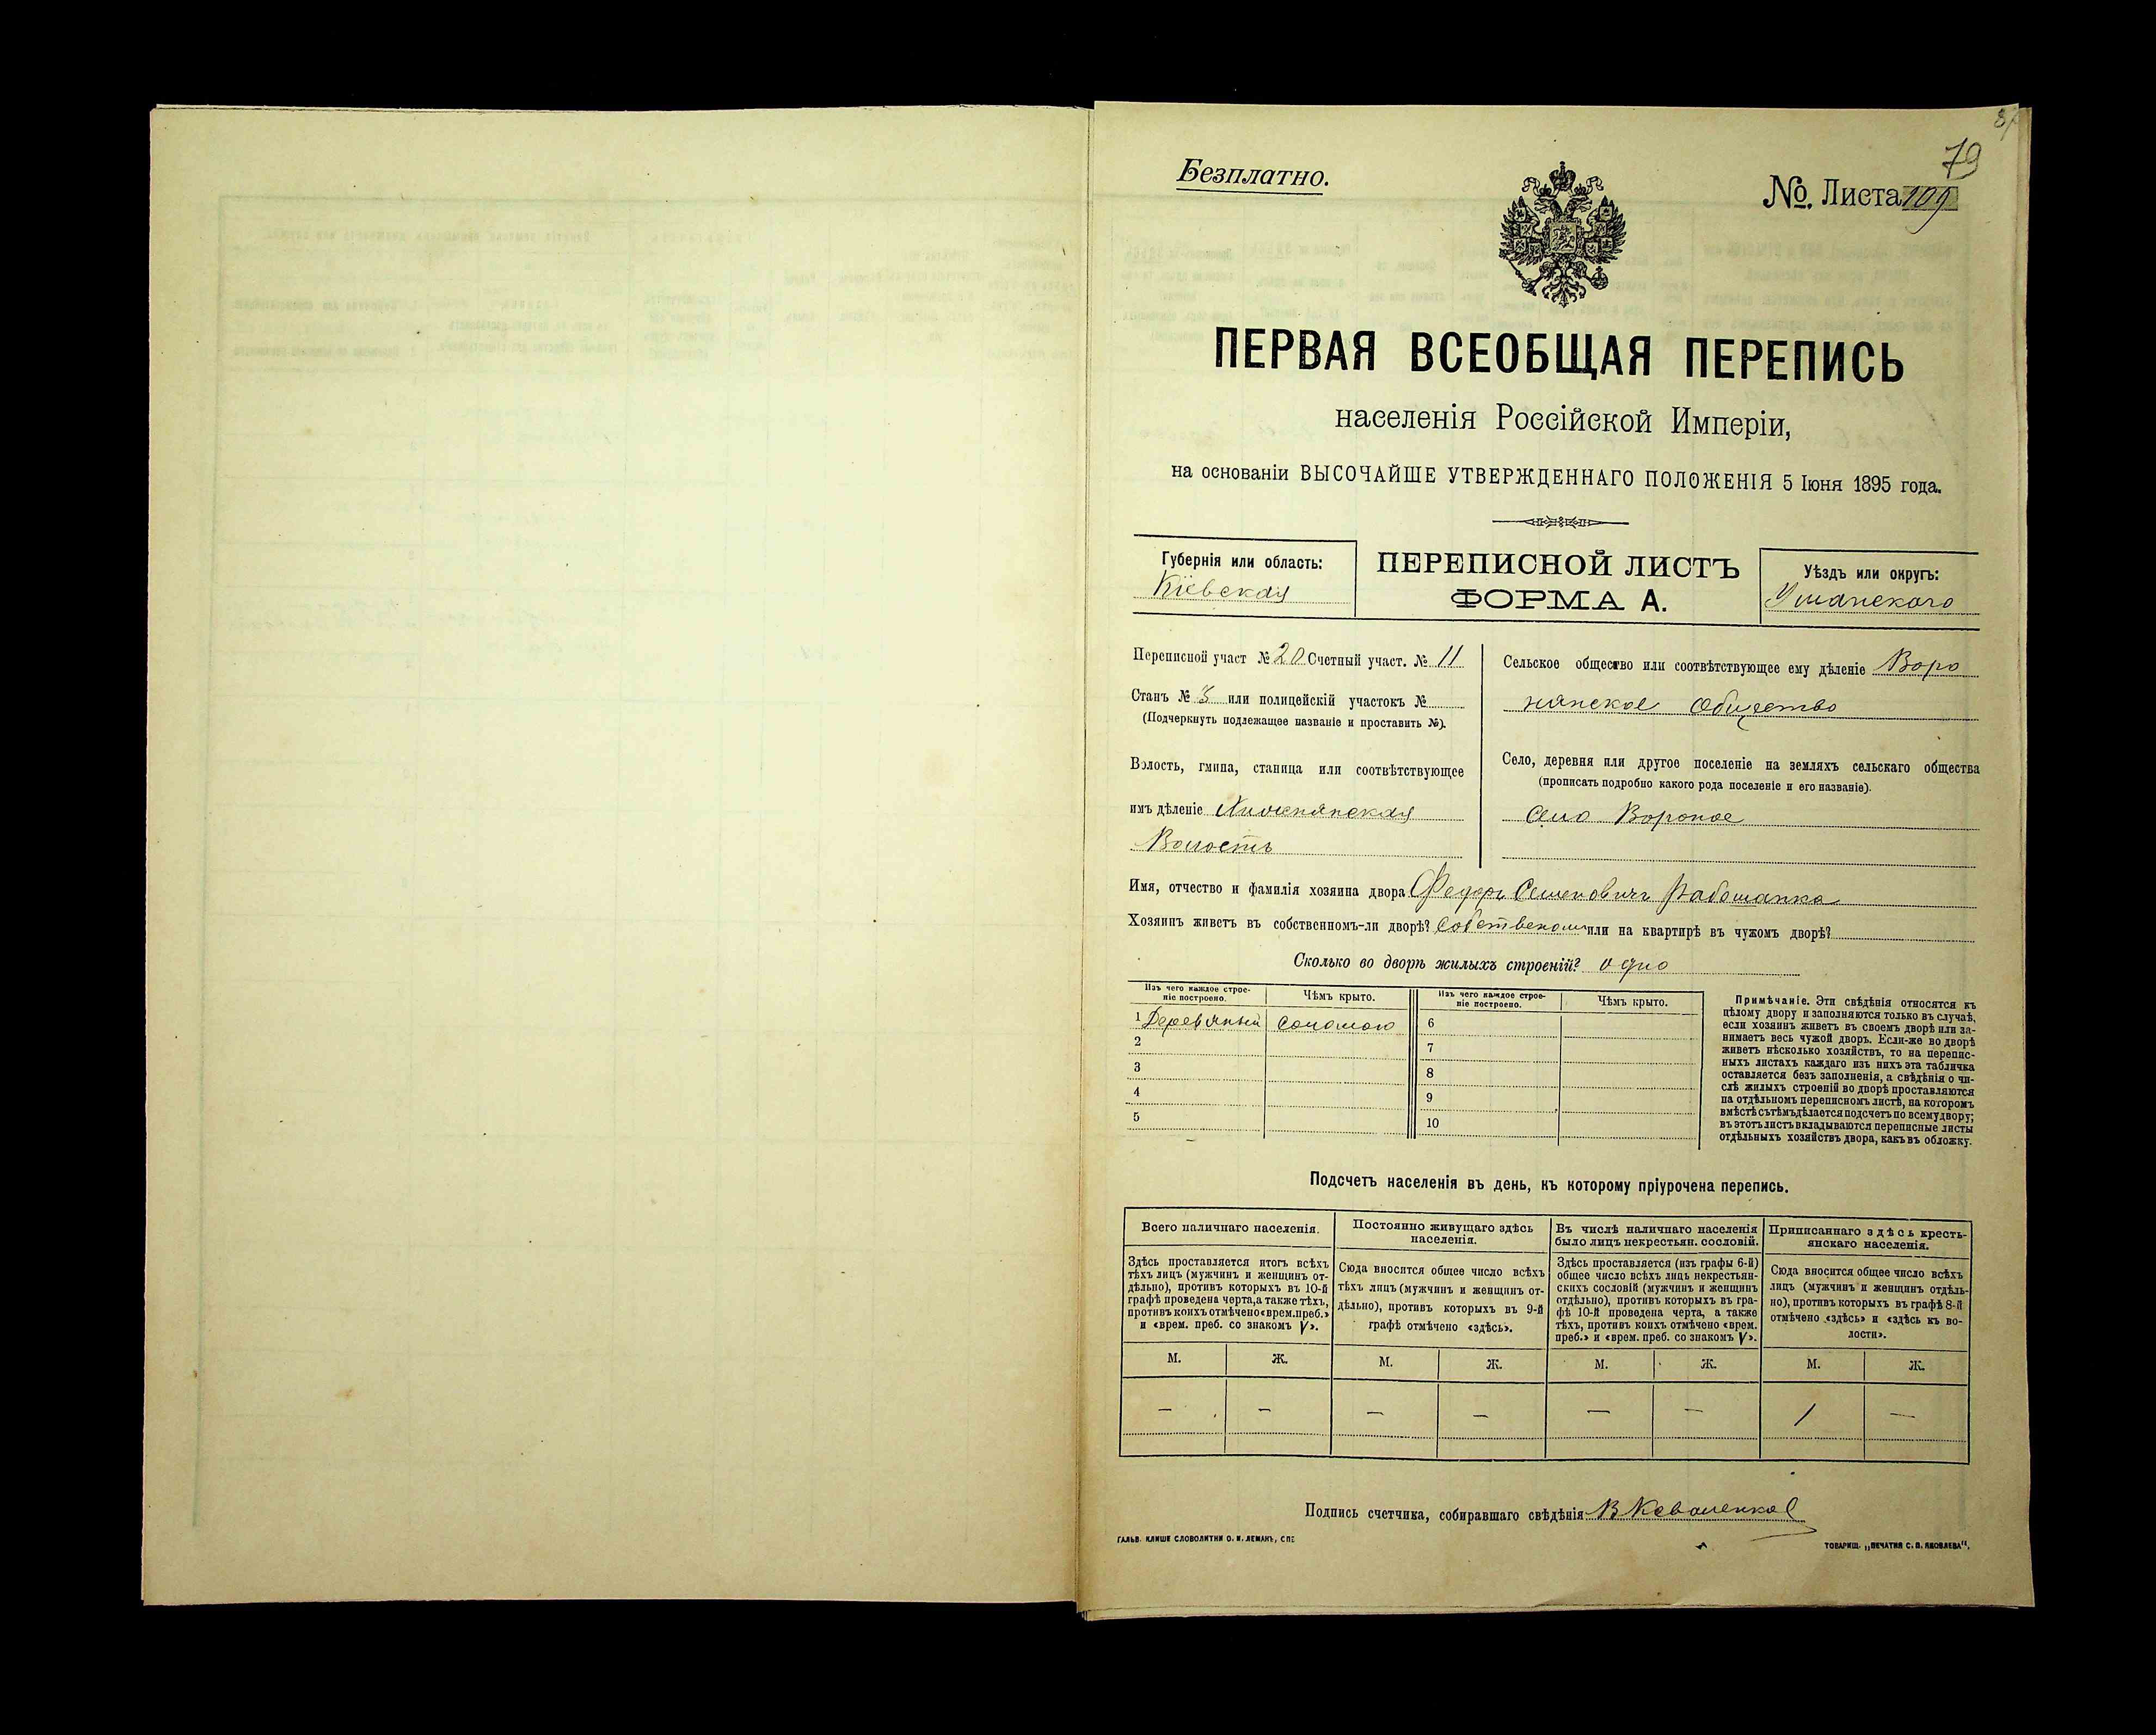 79
Безплатно.
№. Листа 109
ПЕРВАЯ ВСЕОБЩАЯ ПЕРЕПИСЬ
населенія Россійской Имперіи,
на основаніи ВЫСОЧАЙШЕ УТВЕРЖДЕННАГО ПОЛОЖЕНІЯ 5 Іюня 1895 года.
Губернія или область:
Кіевская
ПЕРЕПИСНОЙ ЛИСТЪ
ФОРМА А.
Уѣздъ или округъ:
Уманского
Переписной участ № 20 Счетный участ. № 11
Станъ № 3 или полицейскій участокъ №
(Подчеркнуть подлежащее названіе и проставить №).
Волость, гмина, станица или соотвѣтствующее
имъ дѣленіе
Волость
Сельское общество или соотвѣтствующее ему дѣленіе Воро
нянское Общество
Село, деревня или другое поселеніе на земляхъ сельскаго общества
(прописать подробно какого рода поселеніе и его названіе).
Село Вороное
Имя, отчество и фамилія хозяина двора Федоръ Семеновичъ Рабошапка
Хозяинъ живетъ въ собственномъ-ли дворѣ? собственомъ или на квартирѣ въ чужомъ дворѣ?
Сколько во дворѣ жилыхъ строеній? одно
Изъ чего каждое строе-
ніе построено.
Чѣмъ крыто.
Изъ чего каждое строе-
ніе построено.
Чѣмъ крыто.
1 Деревяный Соломою 6
2 7
3 8
4 9
5 10
Примѣчаніе. Эти свѣдѣнія относятся къ
цѣлому двору и заполняются только въ случаѣ,
если хозяинъ живетъ въ своемъ дворѣ или за-
нимаетъ весь чужой дворъ. Если-же во дворѣ
живетъ нѣсколько хозяйствъ, то на перепис-
ныхъ листахъ каждаго изъ нихъ эта табличка
оставляется безъ заполненія, а свѣдѣнія о чи-
слѣ жилыхъ строеній во дворѣ проставляются
на отдѣльномъ переписномъ листѣ, на которомъ
вмѣстѣ съ тѣмъ дѣлается подсчетъ по всему двору;
въ этотъ листъ вкладываются переписные листы
отдѣльныхъ хозяйствъ двора, какъ въ обложку.
Подсчетъ населенія въ день, къ которому пріурочена перепись.
Всего наличнаго населенія.
Здѣсь проставляется итогъ всѣхъ
тѣхъ лицъ (мужчинъ и женщинъ от-
дѣльно), противъ которыхъ въ 10-й
графѣ проведена черта, а также тѣхъ,
противъ коихъ отмѣчено «врем. преб.»
и «врем. преб. со знакомъ V».
Постоянно живущаго здѣсь
населенія.
Сюда вносится общее число всѣхъ
тѣхъ лицъ (мужчинъ и женщинъ от-
дѣльно), противъ которыхъ въ 9-й
графѣ отмѣчено «здѣсь».
Въ числѣ наличнаго населенія
было лицъ некрестьян. сословій.
Здѣсь проставляется (изъ графы 6-й)
общее число всѣхъ лицъ некрестьян-
скихъ сословій (мужчинъ и женщинъ
отдѣльно), противъ которыхъ въ гра-
фѣ 10-й проведена черта, а также
тѣхъ, противъ коихъ отмѣчено «врем.
преб.» и «врем. преб. со знакомъ V».
Приписаннаго здѣсь кресть-
янскаго населенія.
Сюда вносится общее число всѣхъ
лицъ (мужчинъ и женщинъ отдѣль-
но), противъ которыхъ въ графѣ 8-й
отмѣчено «здѣсь» и «здѣсь къ во-
лости».
М. Ж. М. Ж. М. Ж. М. Ж.
— — — — — — 1 —
Подпись счетчика, собиравшаго свѣдѣнія
ГАЛЬВ. КЛИШЕ СЛОВОЛИТНИ О. И. ЛЕМАНЪ, СПБ
ТОВАРИЩ. „ПЕЧАТНЯ С. П. ЯКОВЛЕВА".